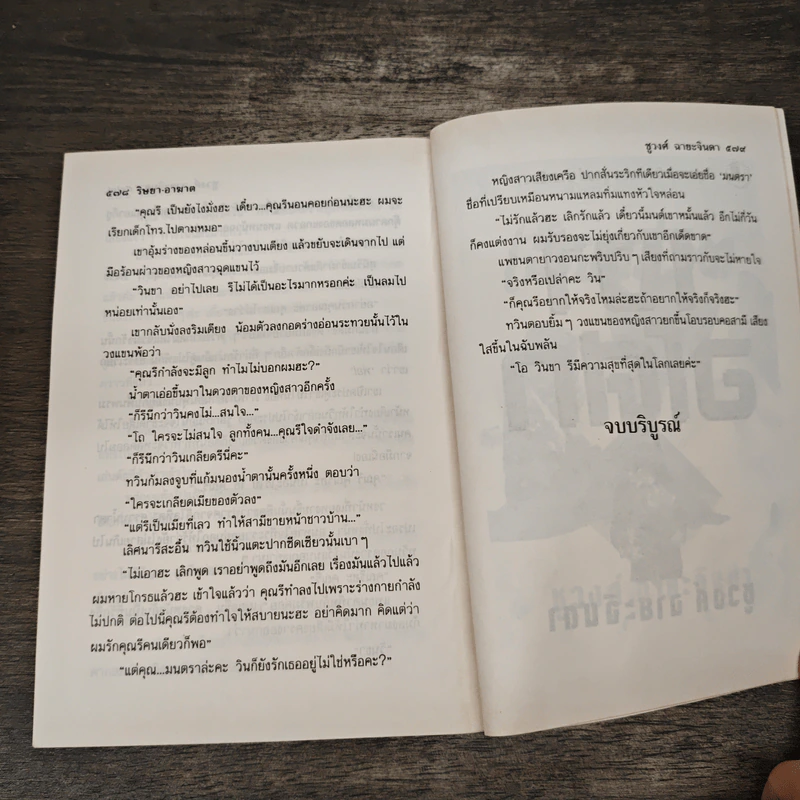 ๕๗๘ ริษยา-อาฆาต
"คุณรี เป็นยังไงมั่งฮะ เดี๋ยว...คุณรีนอนคอยก่อนนะฮะ ผมจะ
เรียกเด็กโทร.ไปตามหมอ"
เขาอุ้มร่างของหล่อนขึ้นวางบนเตียง แล้วขยับจะเดินจากไป แต่
มือร้อนผ่าวของหญิงสาวฉุดแขนไว้
"วินขา อย่าไปเลย รีไม่ได้เป็นอะไรมากหรอกค่ะ เป็นลมไป
หน่อยเท่านั้นเอง"
เขากลับนั่งลงริมเตียง น้อมตัวลงกอดร่างอ่อนระทวยนั้นไว้ใน
วงแขนพ้อว่า
"คุณรีกำลังจะมีลูก ทำไมไม่บอกผมฮะ?"
น้ำตาเอ่อขึ้นมาในดวงตาของหญิงสาวอีกครั้ง
"ก็รีนึกว่าวินคงไม่...สนใจ..."
"โถ ใครจะไม่สนใจ ลูกทั้งคน...คุณรีใจดำจังเลย..."
"ก็รีนึกว่าวินเกลียดรีนี่คะ"
ทวินก้มลงจูบที่แก้มนองน้ำตานั้นครั้งหนึ่ง ตอบว่า
"ใครจะเกลียดเมียของตัวลง"
"แต่รีเป็นเมียที่เลว ทำให้สามีขายหน้าชาวบ้าน..."
เลิศนารีสะอื้น ทวินใช้นิ้วแตะปากซีดเซียวนั้นเบา ๆ
"ไม่เอาฮะ เลิกพูด เราอย่าพูดถึงมันอีกเลย เรื่องมันแล้วไปแล้ว
ผมหายโกรธแล้วฮะ เข้าใจแล้วว่า คุณรีทำลงไปเพราะร่างกายกำลัง
ไม่ปกติ ต่อไปนี้คุณรีต้องทำใจให้สบายนะฮะ อย่าคิดมาก คิดแต่ว่า
ผมรักคุณรีคนเดียวก็พอ"
"แต่คุณ...มนตราล่ะคะ วินก็ยังรักเธออยู่ไม่ใช่หรือคะ?"
ชูวงศ์ ฉายะจินดา ๕๗๙
หญิงสาวเสียงเครือ ปากสั่นระริกทีเดียวเมื่อจะเอ่ยชื่อ 'มนตรา'
ชื่อที่เปรียบเหมือนหนามแหลมทิ่มแทงหัวใจหล่อน
"ไม่รักแล้วฮะ เลิกรักแล้ว เดี๋ยวนี้มนต์เขาหมั้นแล้ว อีกไม่กี่วัน
ก็คงแต่งงาน ผมรับรองจะไม่ยุ่งเกี่ยวกับเขาอีกเด็ดขาด"
แพขนตายาวงอนกะพริบปริบ ๆ เสียงที่ถามราวกับจะไม่หายใจ
"จริงหรือเปล่าคะ วิน"
"ก็คุณรีอยากให้จริงไหมล่ะฮะถ้าอยากให้จริงก็จริงฮะ"
ทวินตอบยิ้ม ๆ วงแขนของหญิงสาวยกขึ้นโอบรอบคอสามี เสียง
ใสขึ้นในฉับพลัน
"โอ วินขา รีมีความสุขที่สุดในโลกเลยค่ะ"
จบบริบูรณ์